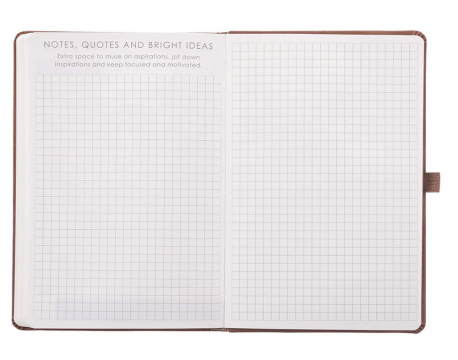 NOTES, QUOTES AND BRIGHT IDEAS
Extra space to muse on aspirations, jot down
inspirations and keep focused and motivated.